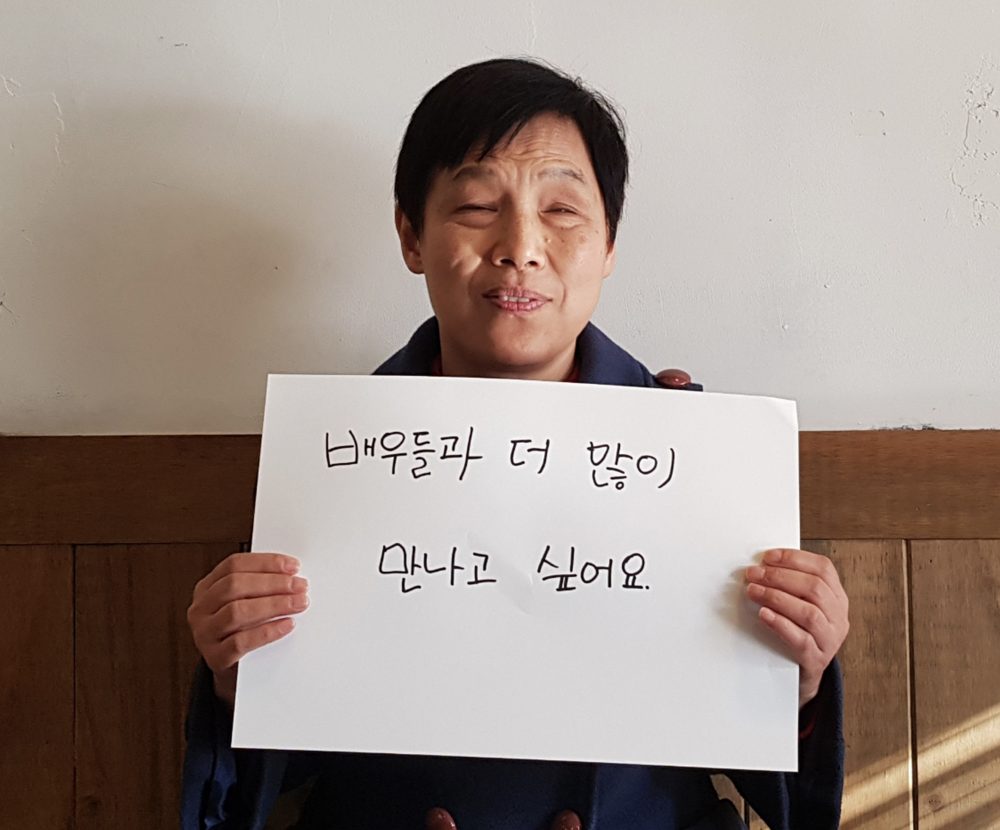 배우들과 더 많이
만나고 싶어요.